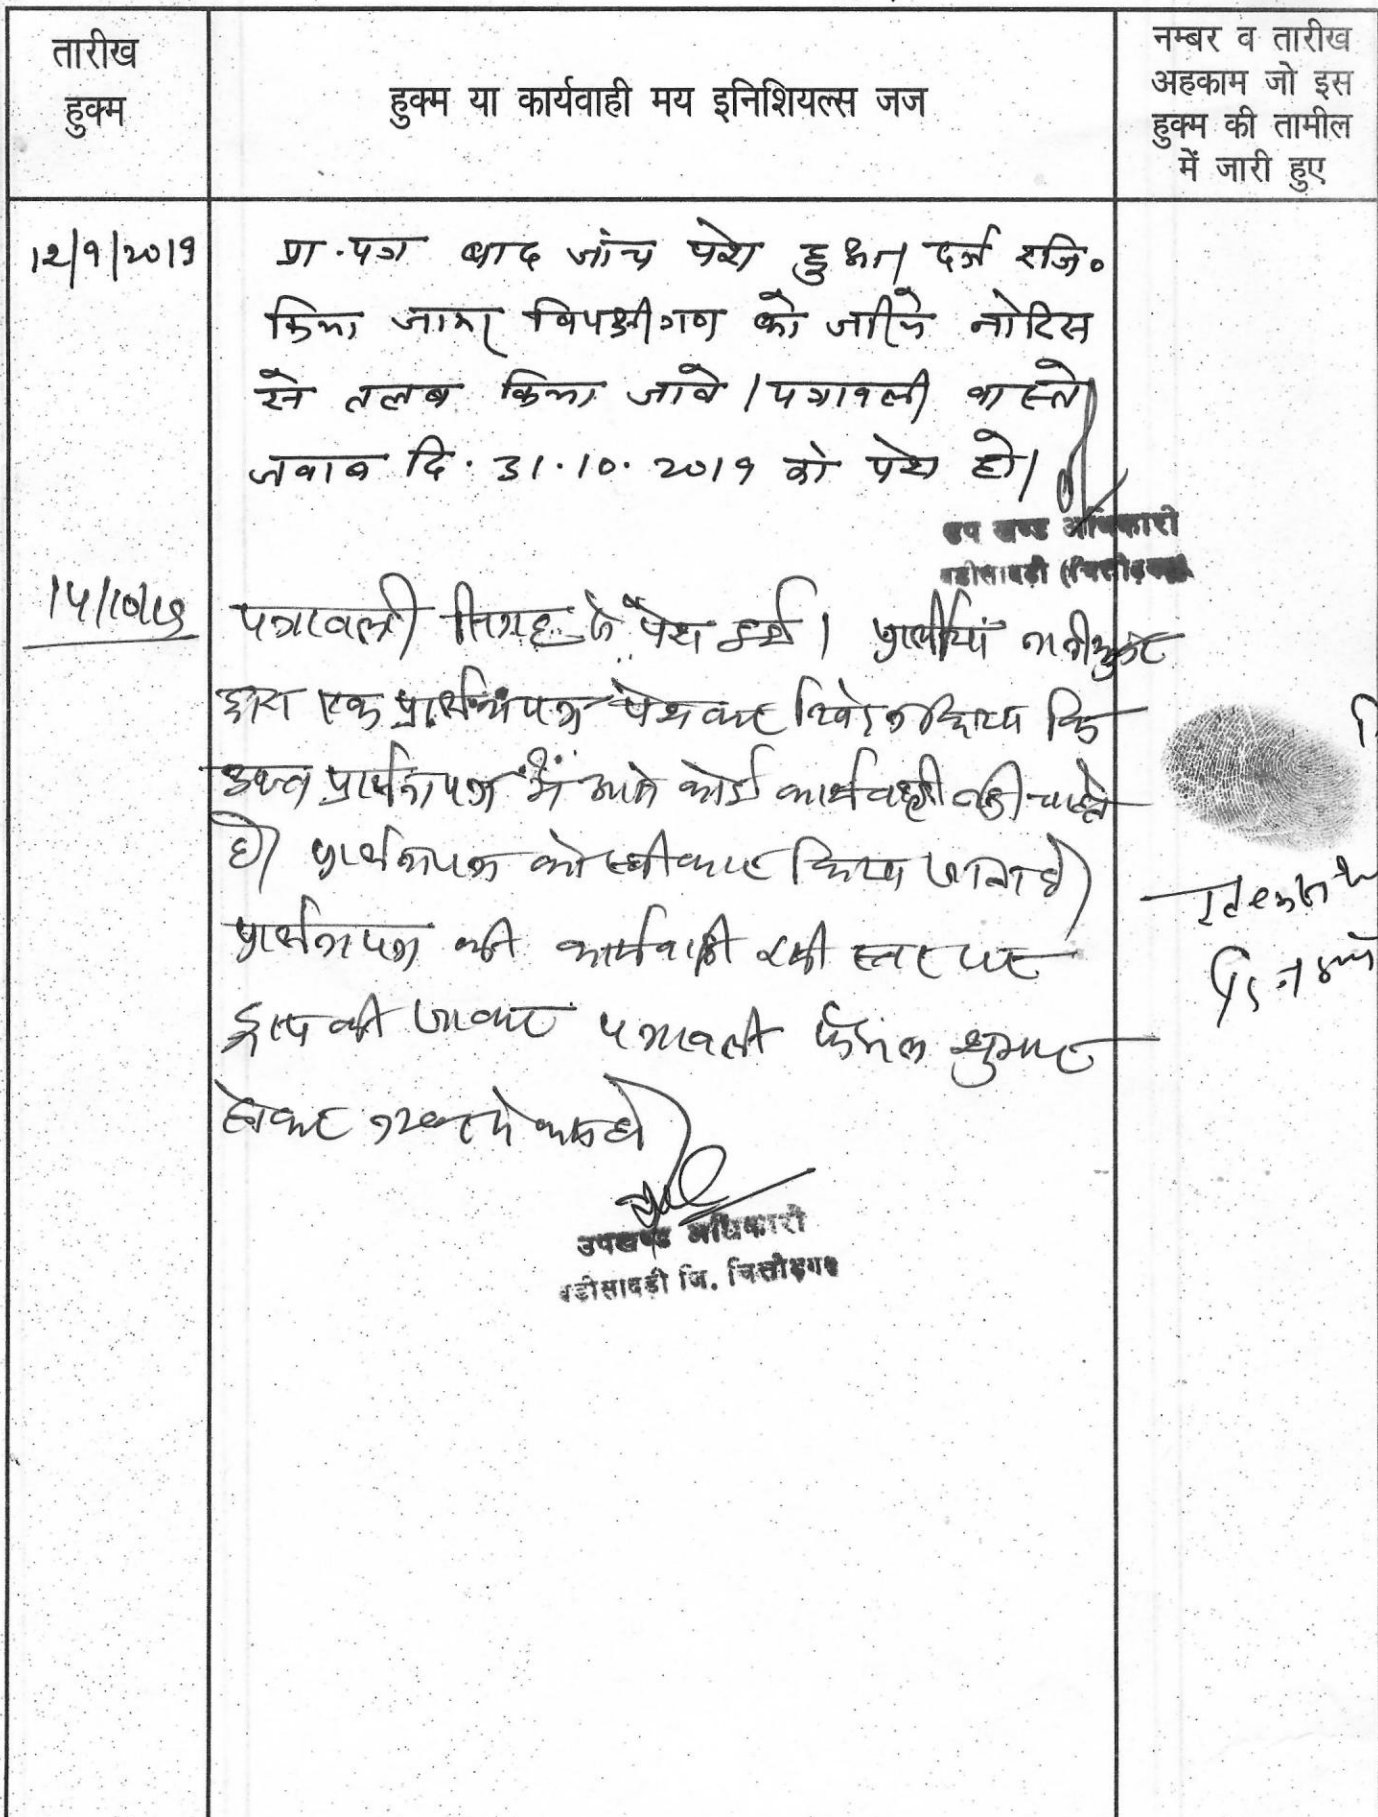 तारीख
हुक्म
हुक्म या कार्यवाही मय इनिशियल्स जज
नम्बर व तारीख
अहकाम जो इस
हुक्म की तामील
में जारी हुए
12/9/2019
प्रा.पत्र बाद जांच पेश हुआ। दर्ज रजि०
किया जाकर विपक्षीगण को जरिये नोटिस
से तलब किया जावे। पत्रावली वास्ते
जवाब दि. 31.10.2019 को पेश हो।
उप खण्ड अधिकारी
बडीसादडी (चित्तौड़गढ़)
पत्रावली पेश हुई। प्रार्थीया
द्वारा एक प्रार्थनापत्र पेशकर निवेदन किया कि
उक्त प्रार्थनापत्र में आगे कोई कार्यवाही नहीं चाहते
है। प्रार्थनापत्र को स्वीकार किया जाता है।
प्रार्थनापत्र की कार्यवाही इसी स्तर पर
ड्राप की जाकर पत्रावली फैसल शुमार
होकर नम्बर से कम हो।
उपखण्ड अधिकारी
बडीसादडी जि. चित्तौड़गढ़